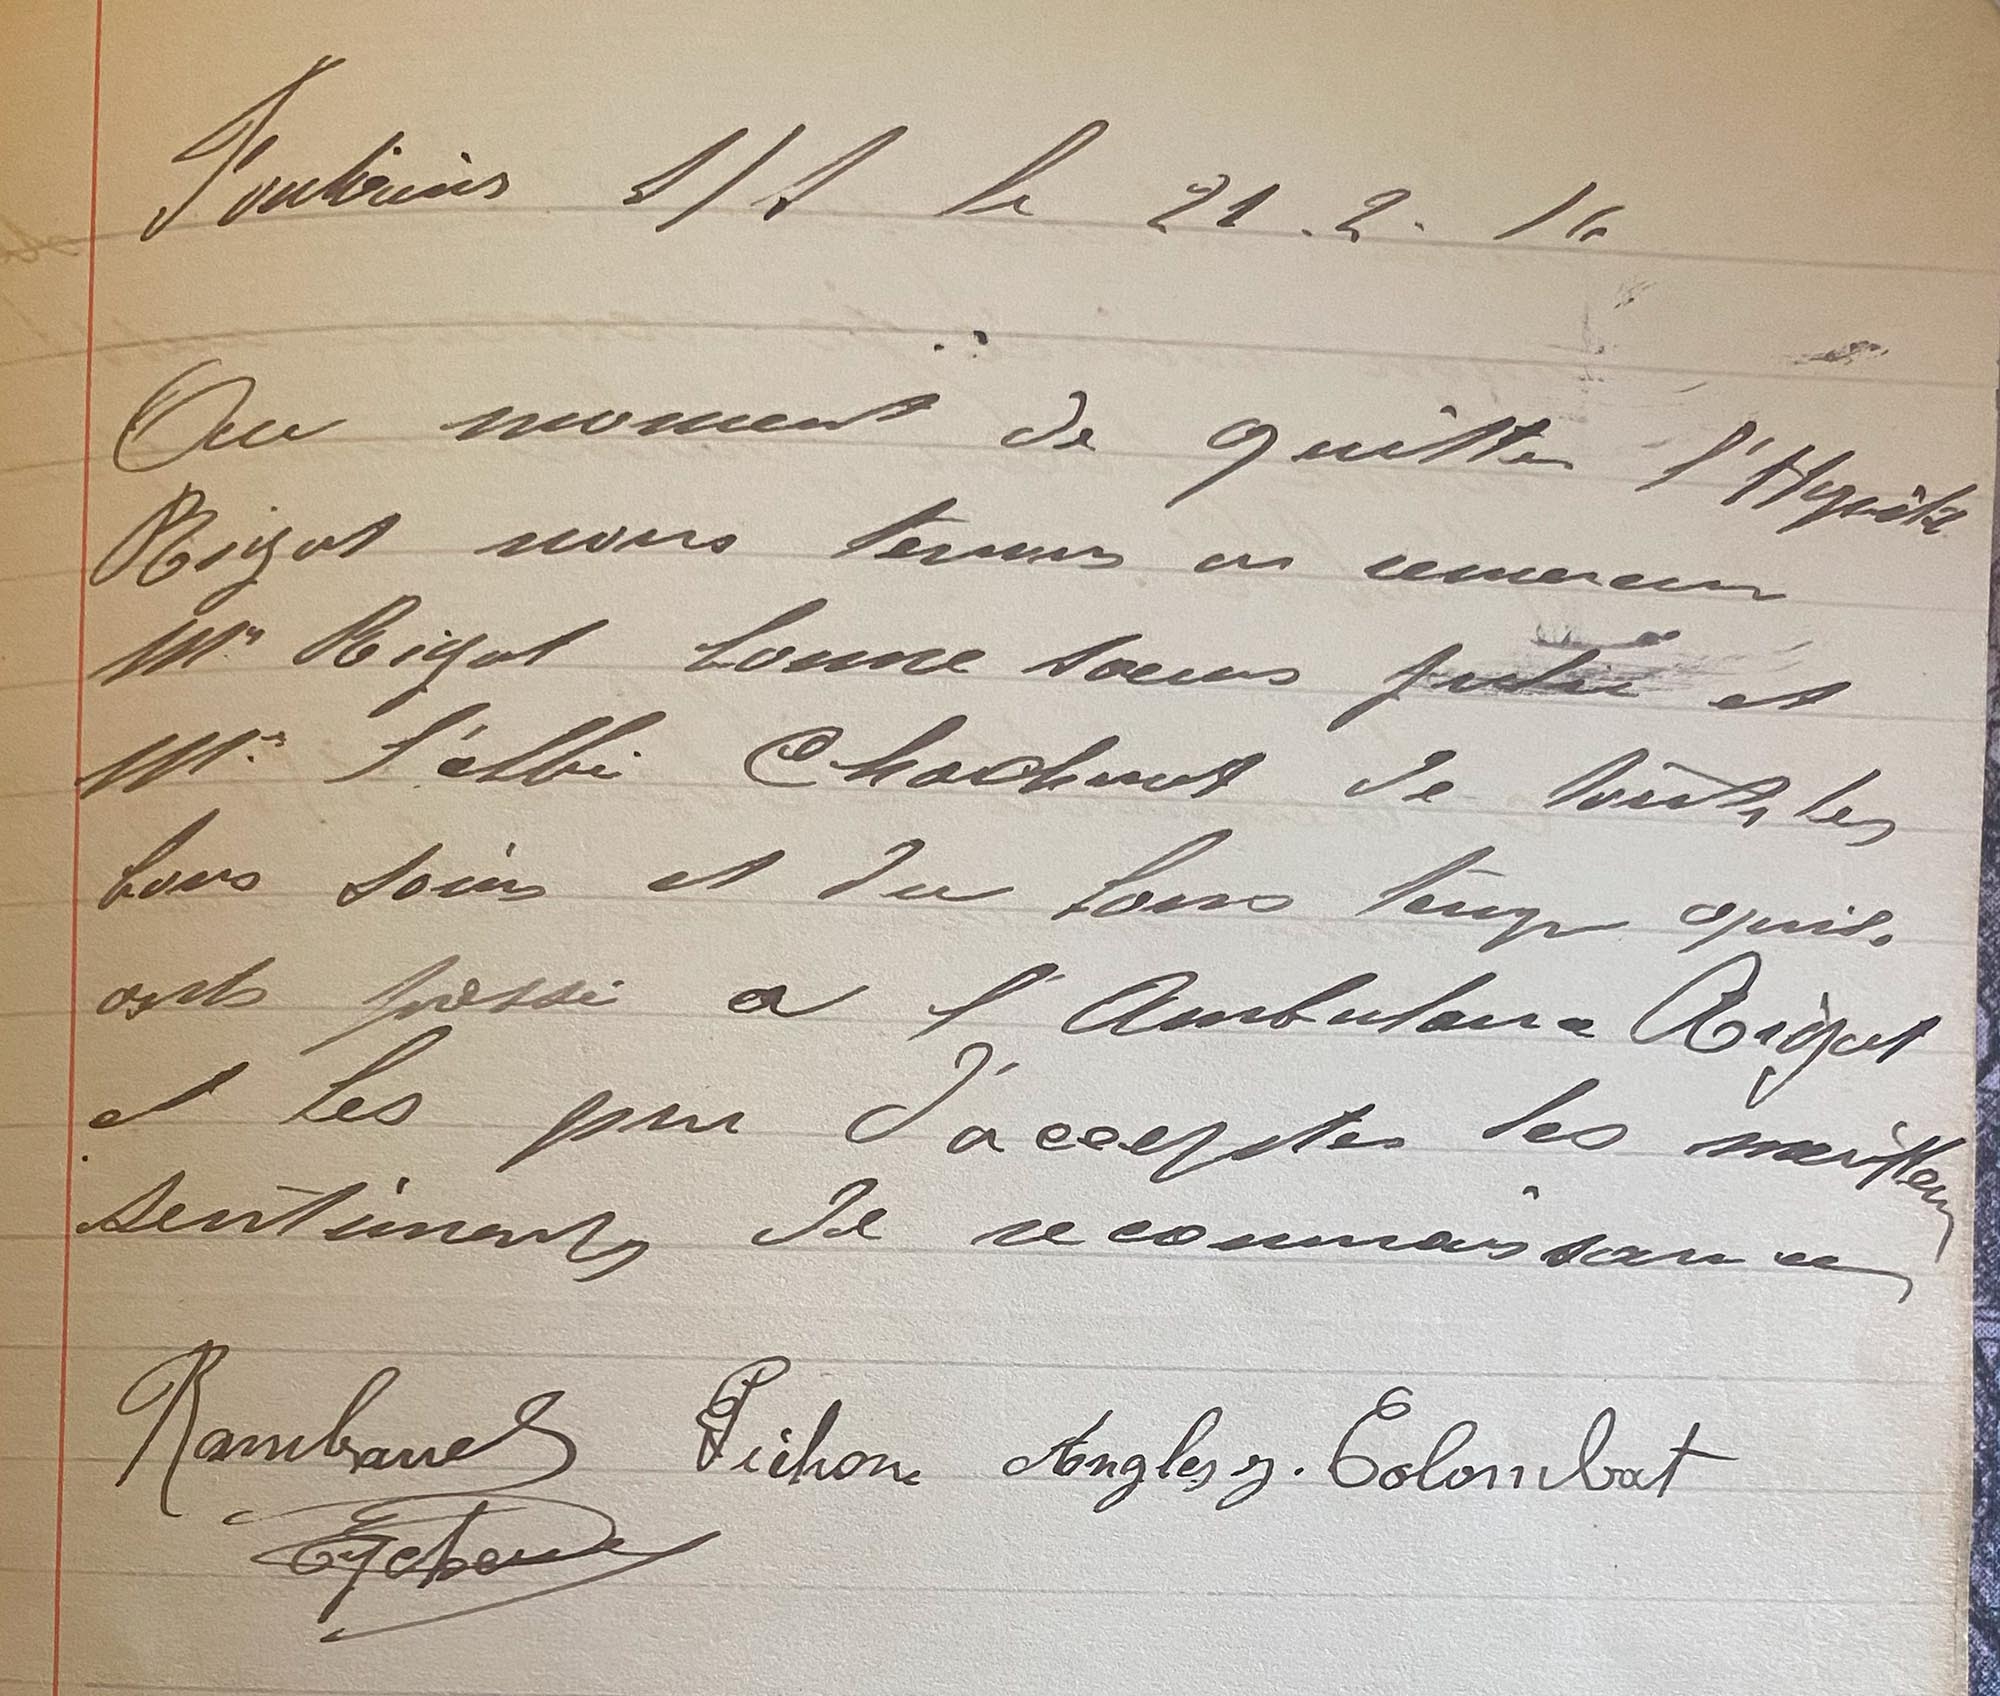 Fontaines S/S le 21.2.16
Au moment de quitter l'Hopitle
Rigot nous tenons a remercier
Mr Rigot bonne soeurs Julie et
Mr l'abbé Chachuat de touts les
bons soins et du bons temps quils
onts passé a l'Ambulance Rigot
et les pri d'accepter les meilleurs
sentiments de reconnaissances
Rambaud Pichon Angles J. Colombat